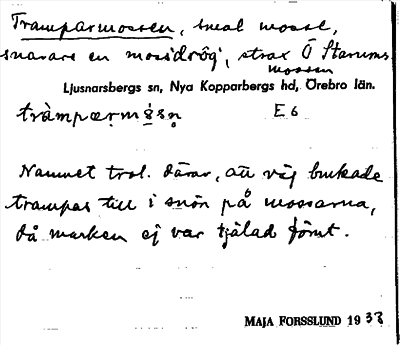 Tramparmossen, smal mosse,
snarare en mossdråg, strax Ö Starrms
mossen
Ljusnarsbergs sn, Nya Kopparbergs hd, Örebro län.
E 6
Namnet trol. därav, att väg brukade
trampas till i snön på mossarna,
då marken ej var tjälad förut.
MAJA FORSSLUND 1933